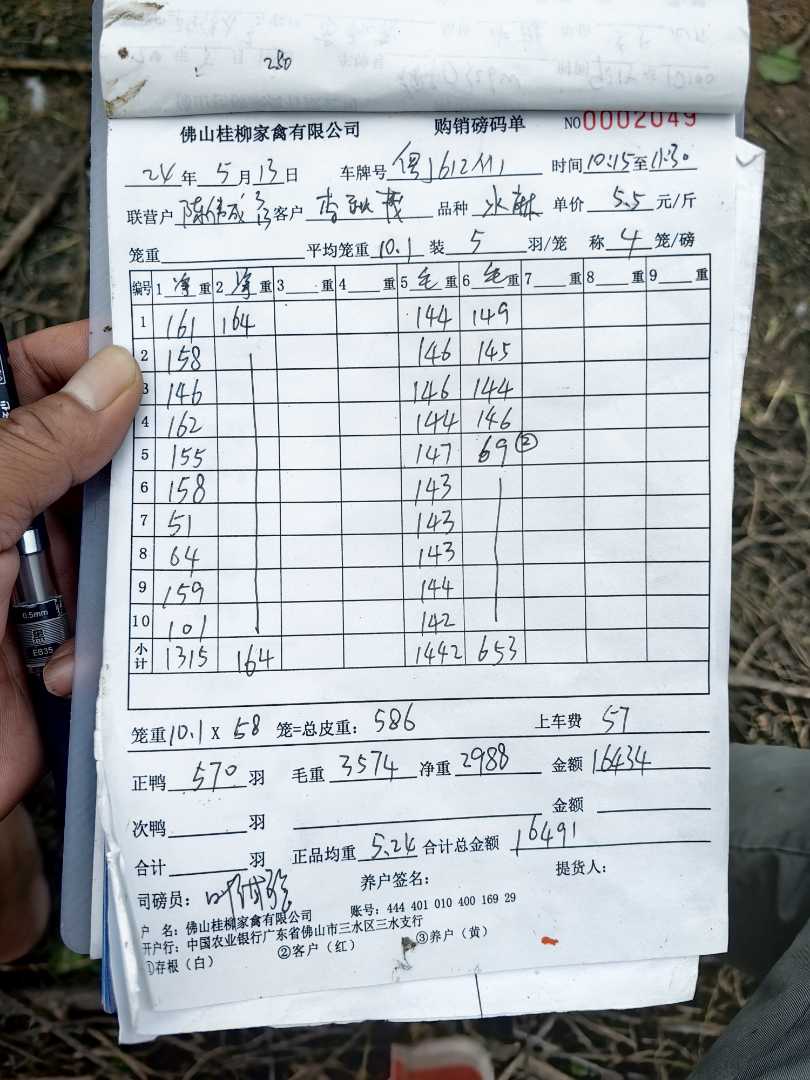 280
佛山桂柳家禽有限公司 购销磅码单 NO0002049
24年5月13日 车牌号 时间10:15至11:30
联营户 陈伟成 客户 品种 单价5.5元/斤
笼重 平均笼重10.1 装5羽/笼 称4笼/磅
编号 1净重 2净重 3重 4重 5毛重 6毛重 7重 8重 9重
1 161 164 144 149
2 158 146 145
3 146 146 144
4 162 144 146
5 155 147 69②
6 158 143
7 51 143
8 64 143
9 159 144
10 101 142
小计 1315 164 1442 653
笼重10.1X58笼=总皮重:586 上车费57
正鸭570羽 毛重3574净重2988 金额16434
次鸭羽 金额
合计羽 正品均重5.24合计总金额16491
司磅员: 养户签名: 提货人:
户 名:佛山桂柳家禽有限公司 账号:444 401 010 400 169 29
开户行:中国农业银行广东省佛山市三水区三水支行
①存根(白) ②客户(红) ③养户(黄)
0.5mm
E835